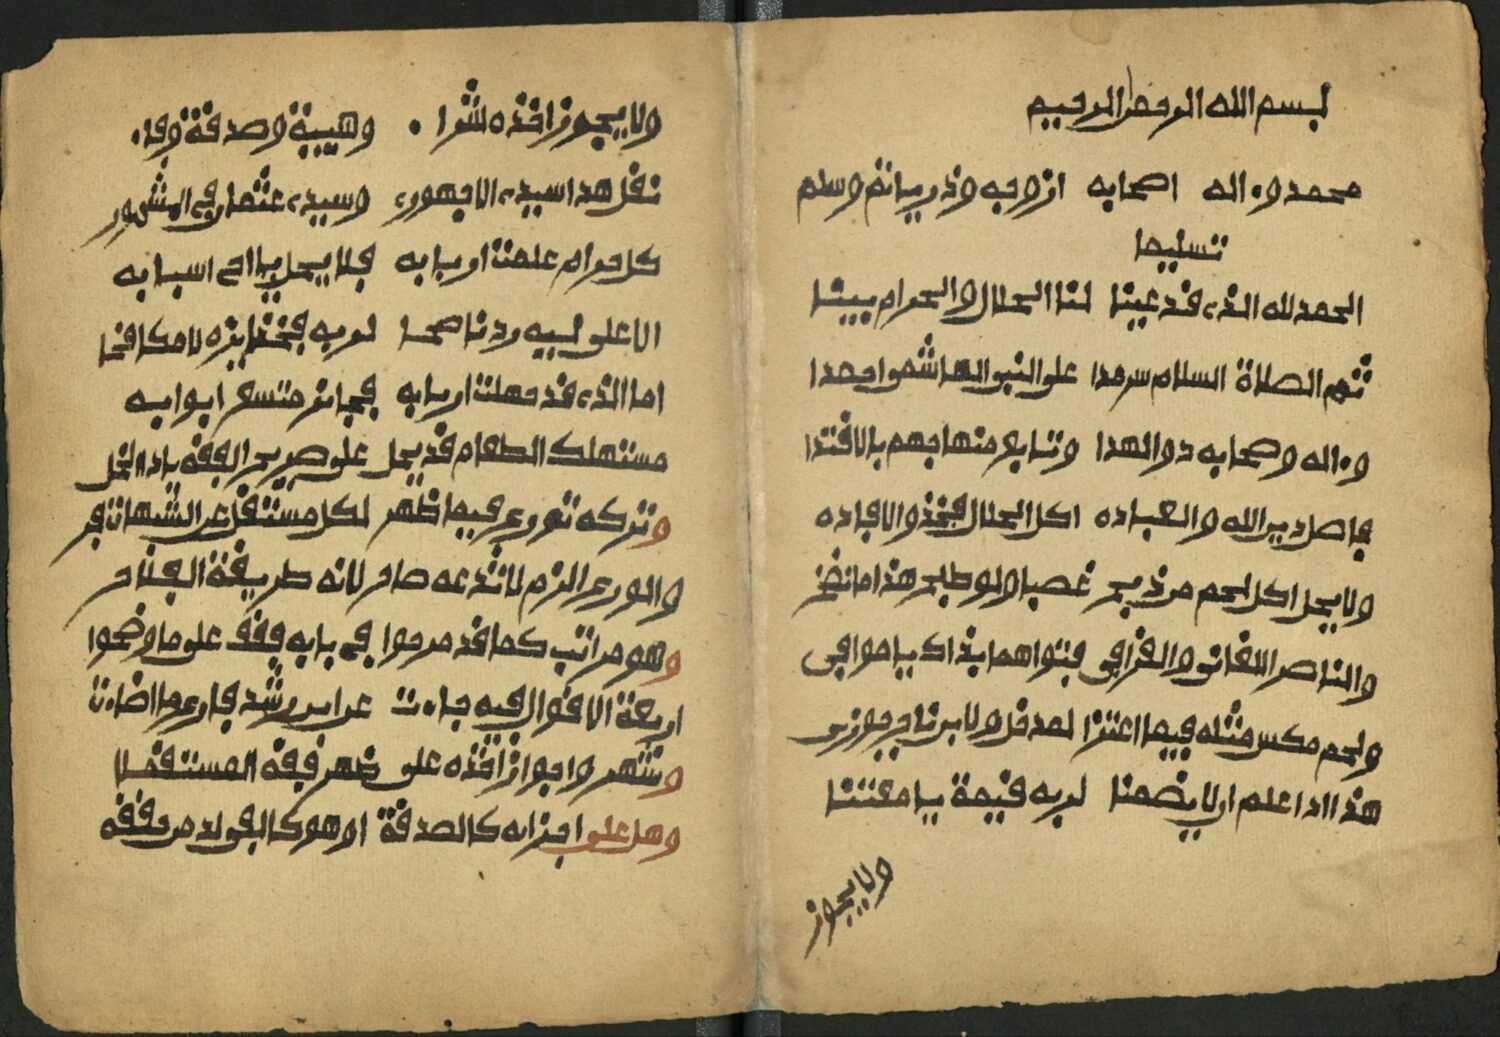 بسم الله الرحمن الرحيم
محمد وءاله اصحابه ازوجه وذرياتم وسلم
تسليما
الحمد لله الذي قد عينا لنا الحلال والحرام بينا
ثم الصلاة السلام سرمدا على النبي الهاشمي احمدا
وءاله وصحابه ذو الهدا وتابع منهاجهم بالاقتدا
فاصل دين الله والعباده اكل الحلال فخذ والافاده
ولا يحل اكل لحم من ذبح غصبا ولو طبخ هذا
والناصر اللقاني والقرافي فتواهما بذاك يا موافي
ولحم مكس مثله فيما اعتزا لمدخل ولا بن ناج جوزى
هذا اذا علم ان لا يضمنا لربه قيمة يا معتنا
ولا يجوز
ولا يجوز اخذه شرا وهيبة وصدقة
نقل هذا سيدي الاجهوري وسيدي عثمان في المشهور
كل حرام علمت اربابه فلا يحل يا اخ اسبابه
الا على لبيه رد ناصحا لربه
اما الذي قد جهلت اربابه فجائز متسع ابوابه
مستهلك الطعام قد يحل على صريح الفقه ياذا الخل
وتركه تورع فيما ظهر لكل مستقل عن الشبهات فر
والورع الزم لا تدعه صاح لانه طريقة الفلاح
وهو مراتب كما قد صرحوا في بابه فقف على ما وضحوا
اربعة الاقوال فيه جاءت عن ابن رشد فارع ما اضاءت
وشهر واجواز اخذه على ظهر فقة المستقلا
وهل على اجزابه كالصدقة او هو كالفي لد من حققه